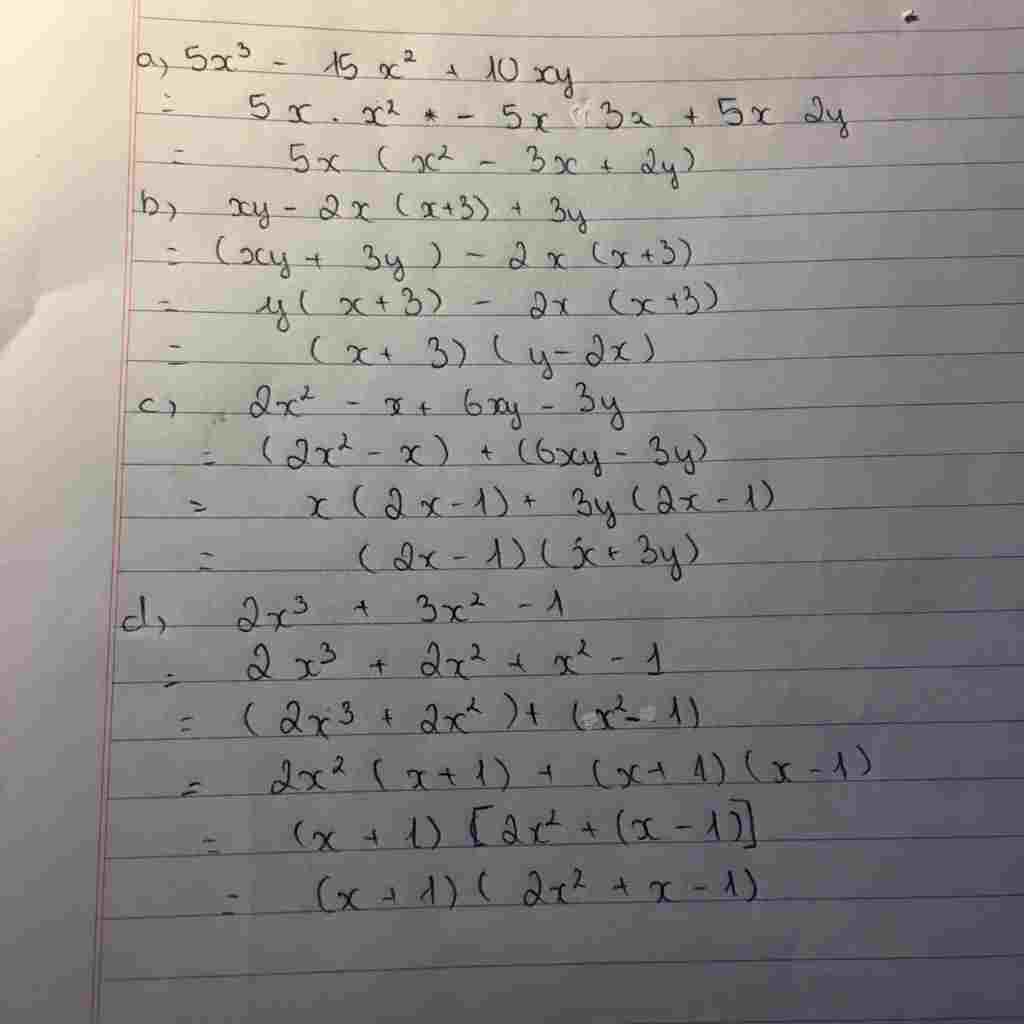 a, 5x³ - 15x² + 10xy
= 5x . x² - 5x 3x + 5x 2y
= 5x (x² - 3x + 2y)
b, xy - 2x (x+3) + 3y
= (xy + 3y) - 2x (x+3)
= y(x+3) - 2x (x+3)
= (x + 3) (y - 2x)
c, 2x² - x + 6xy - 3y
= (2x² - x) + (6xy - 3y)
= x(2x-1) + 3y(2x-1)
= (2x-1)(x+3y)
d, 2x³ + 3x² - 1
= 2x³ + 2x² + x² - 1
= (2x³ + 2x²) + (x² - 1)
= 2x² (x+1) + (x+1)(x-1)
= (x + 1) [2x² + (x - 1)]
= (x + 1) (2x² + x - 1)